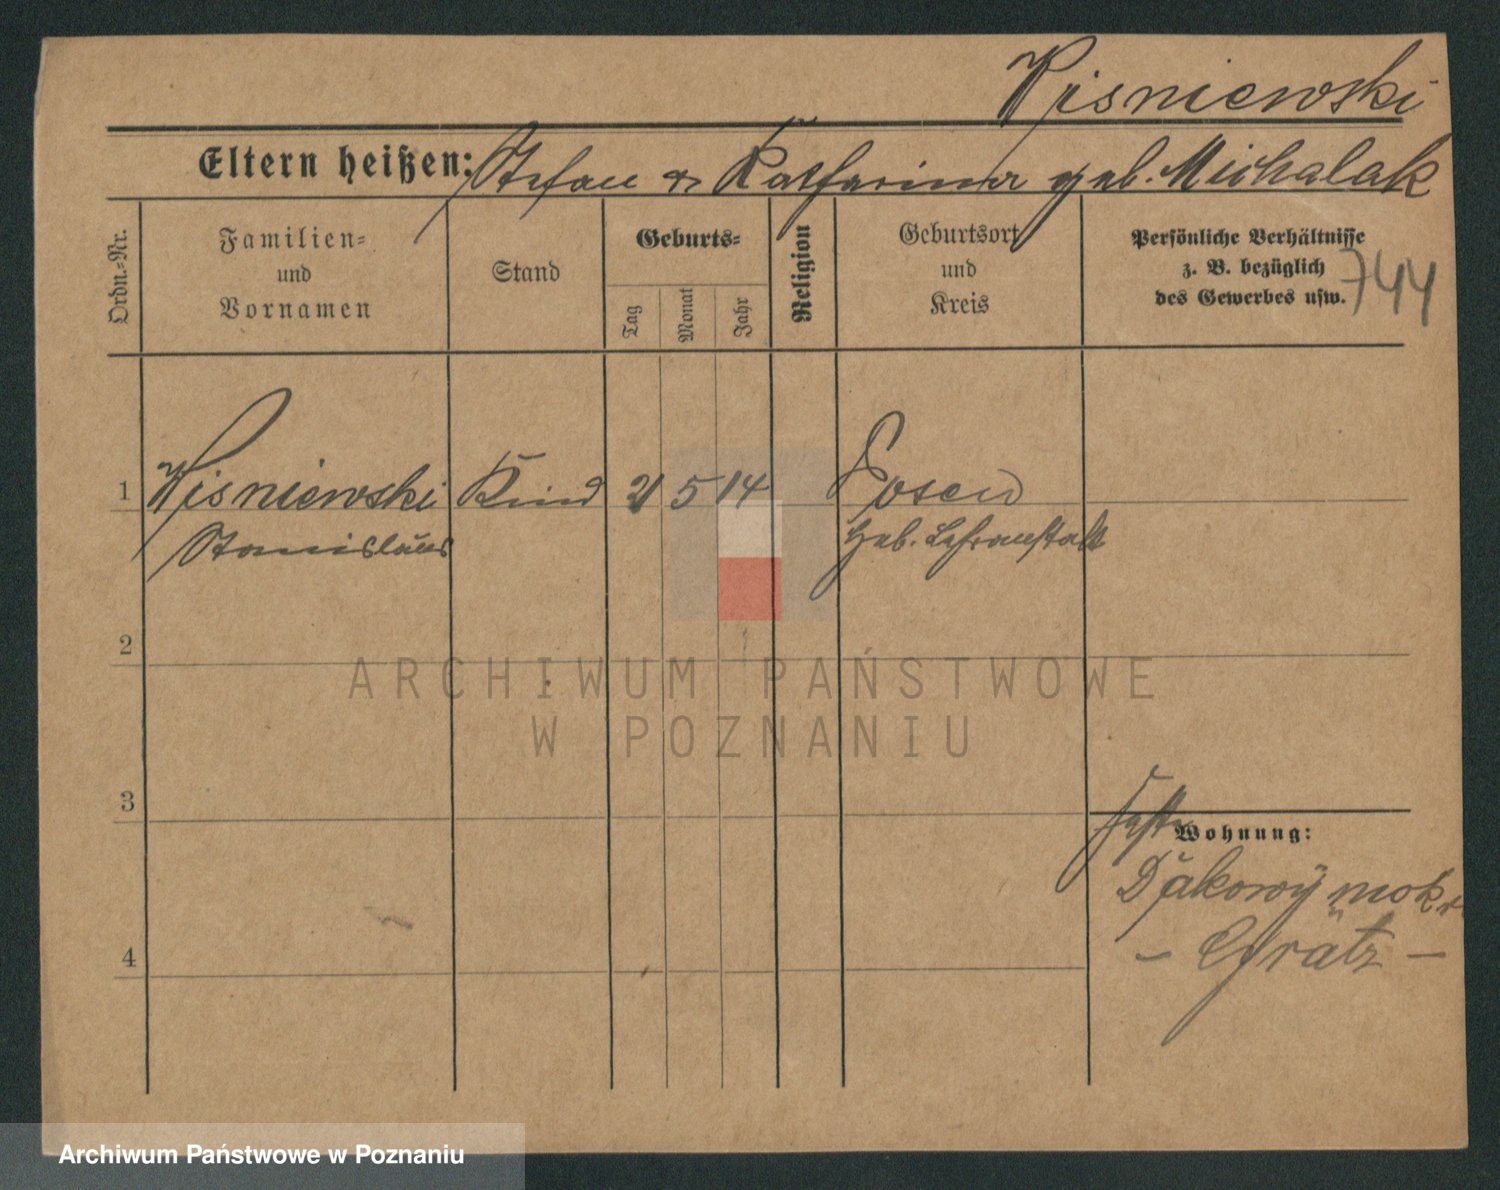 Wisniewski
Eltern heißen: Stefan & Katharina geb. Michalak
Ordn.-Nr.
Familien-
und
Vornamen
Stand
Geburts-
Tag
Monat
Jahr
Religion
Geburtsort
und
Kreis
Persönliche Verhältnisse
z. B. bezüglich
des Gewerbes usw.
744
1
Wisniewski
Stanislaus
Kind
21 5 14
Posen
Geb. Lehranstalt
2
ARCHIWUM PAŃSTWOWE
W POZNANIU
3
Wohnung:
Dąkowy mokre
- Grätz -
4
Archiwum Państwowe w Poznaniu